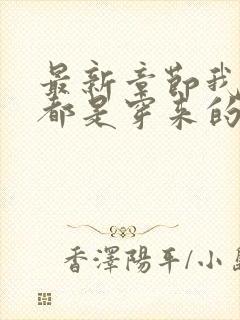 最新章節我
都是穿来的
香澤陽平/小島